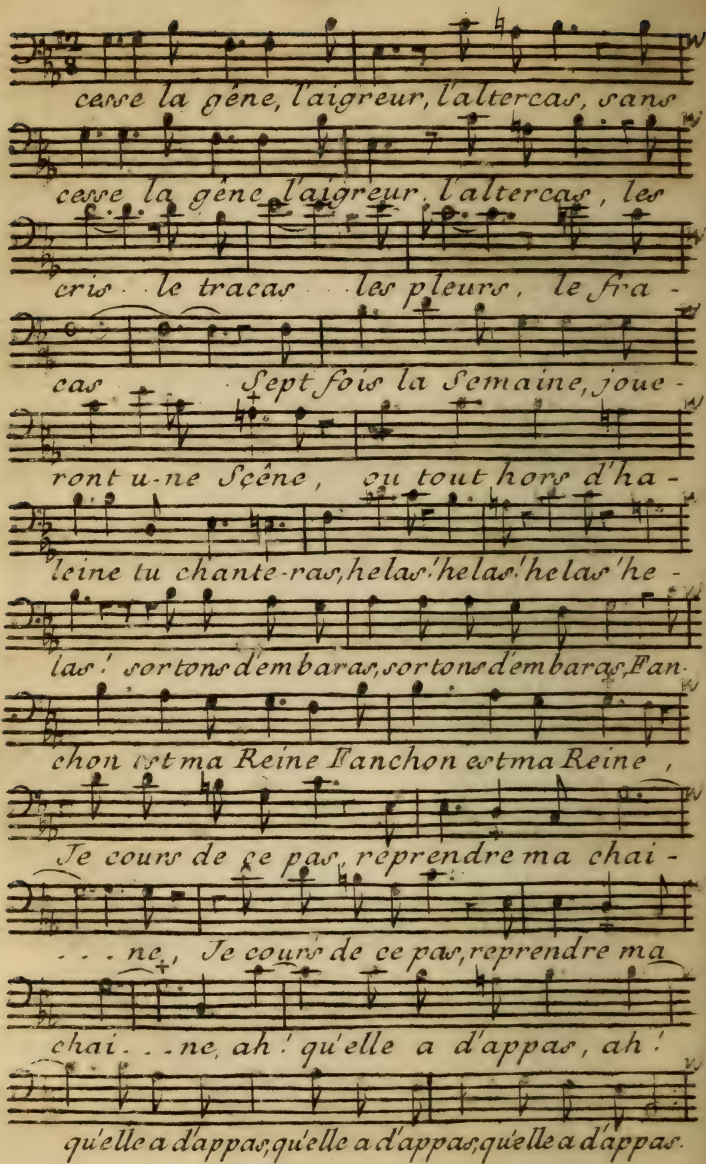 cesse la gêne, l'aigreur, l'altercas, sans
cesse la gêne l'aigreur, l'altercas, les
cris . . le tracas . . les pleurs, le fra -
cas . . Sept fois la Semaine, joue -
ront u-ne Sçêne, ou tout hors d'ha -
leine tu chante-ras, helas! helas! helas! he -
las! sortons d'embaras, sortons d'embaras, Fan-
chon est ma Reine Fanchon est ma Reine,
Je cours de ce pas, reprendre ma chai -
. . . ne, Je cours de ce pas, reprendre ma
chai . . . ne, ah! qu'elle a d'appas, ah!
qu'elle a d'appas, qu'elle a d'appas, qu'elle a d'appas.